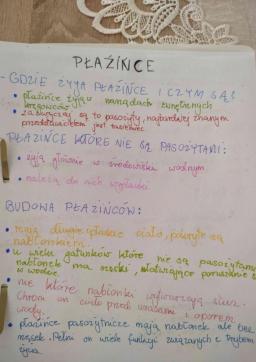 PŁAZIŃCE
- GDZIE ŻYJĄ PŁAZIŃCE I CZYM SĄ?
• płazińce żyją w narządach wewnętrznych
kręgowców
• zazwyczaj są to pasożyty, najbardziej znanym
przedstawicielem jest tasiemiec.
PŁAZIŃCE KTÓRE NIE SĄ PASOŻYTAMI:
• żyją głównie w środowisku wodnym
• należą do nich wypławki
BUDOWA PŁAZIŃCÓW:
• mają długie spłaszczone ciało, pokryte są
nabłonkiem.
• u wielu gatunków które nie są pasożytami
nabłonek ma rzęski, ułatwiające poruszanie się
w wodzie.
• nie które nabłonki wytwarzają śluz.
Chroni on ciało przed urazami i oporem
wody.
• płazińce pasożytnicze mają nabłonek ale bez
rzęsek. Pełni on wiele funkcji związanych z trybem
życia.